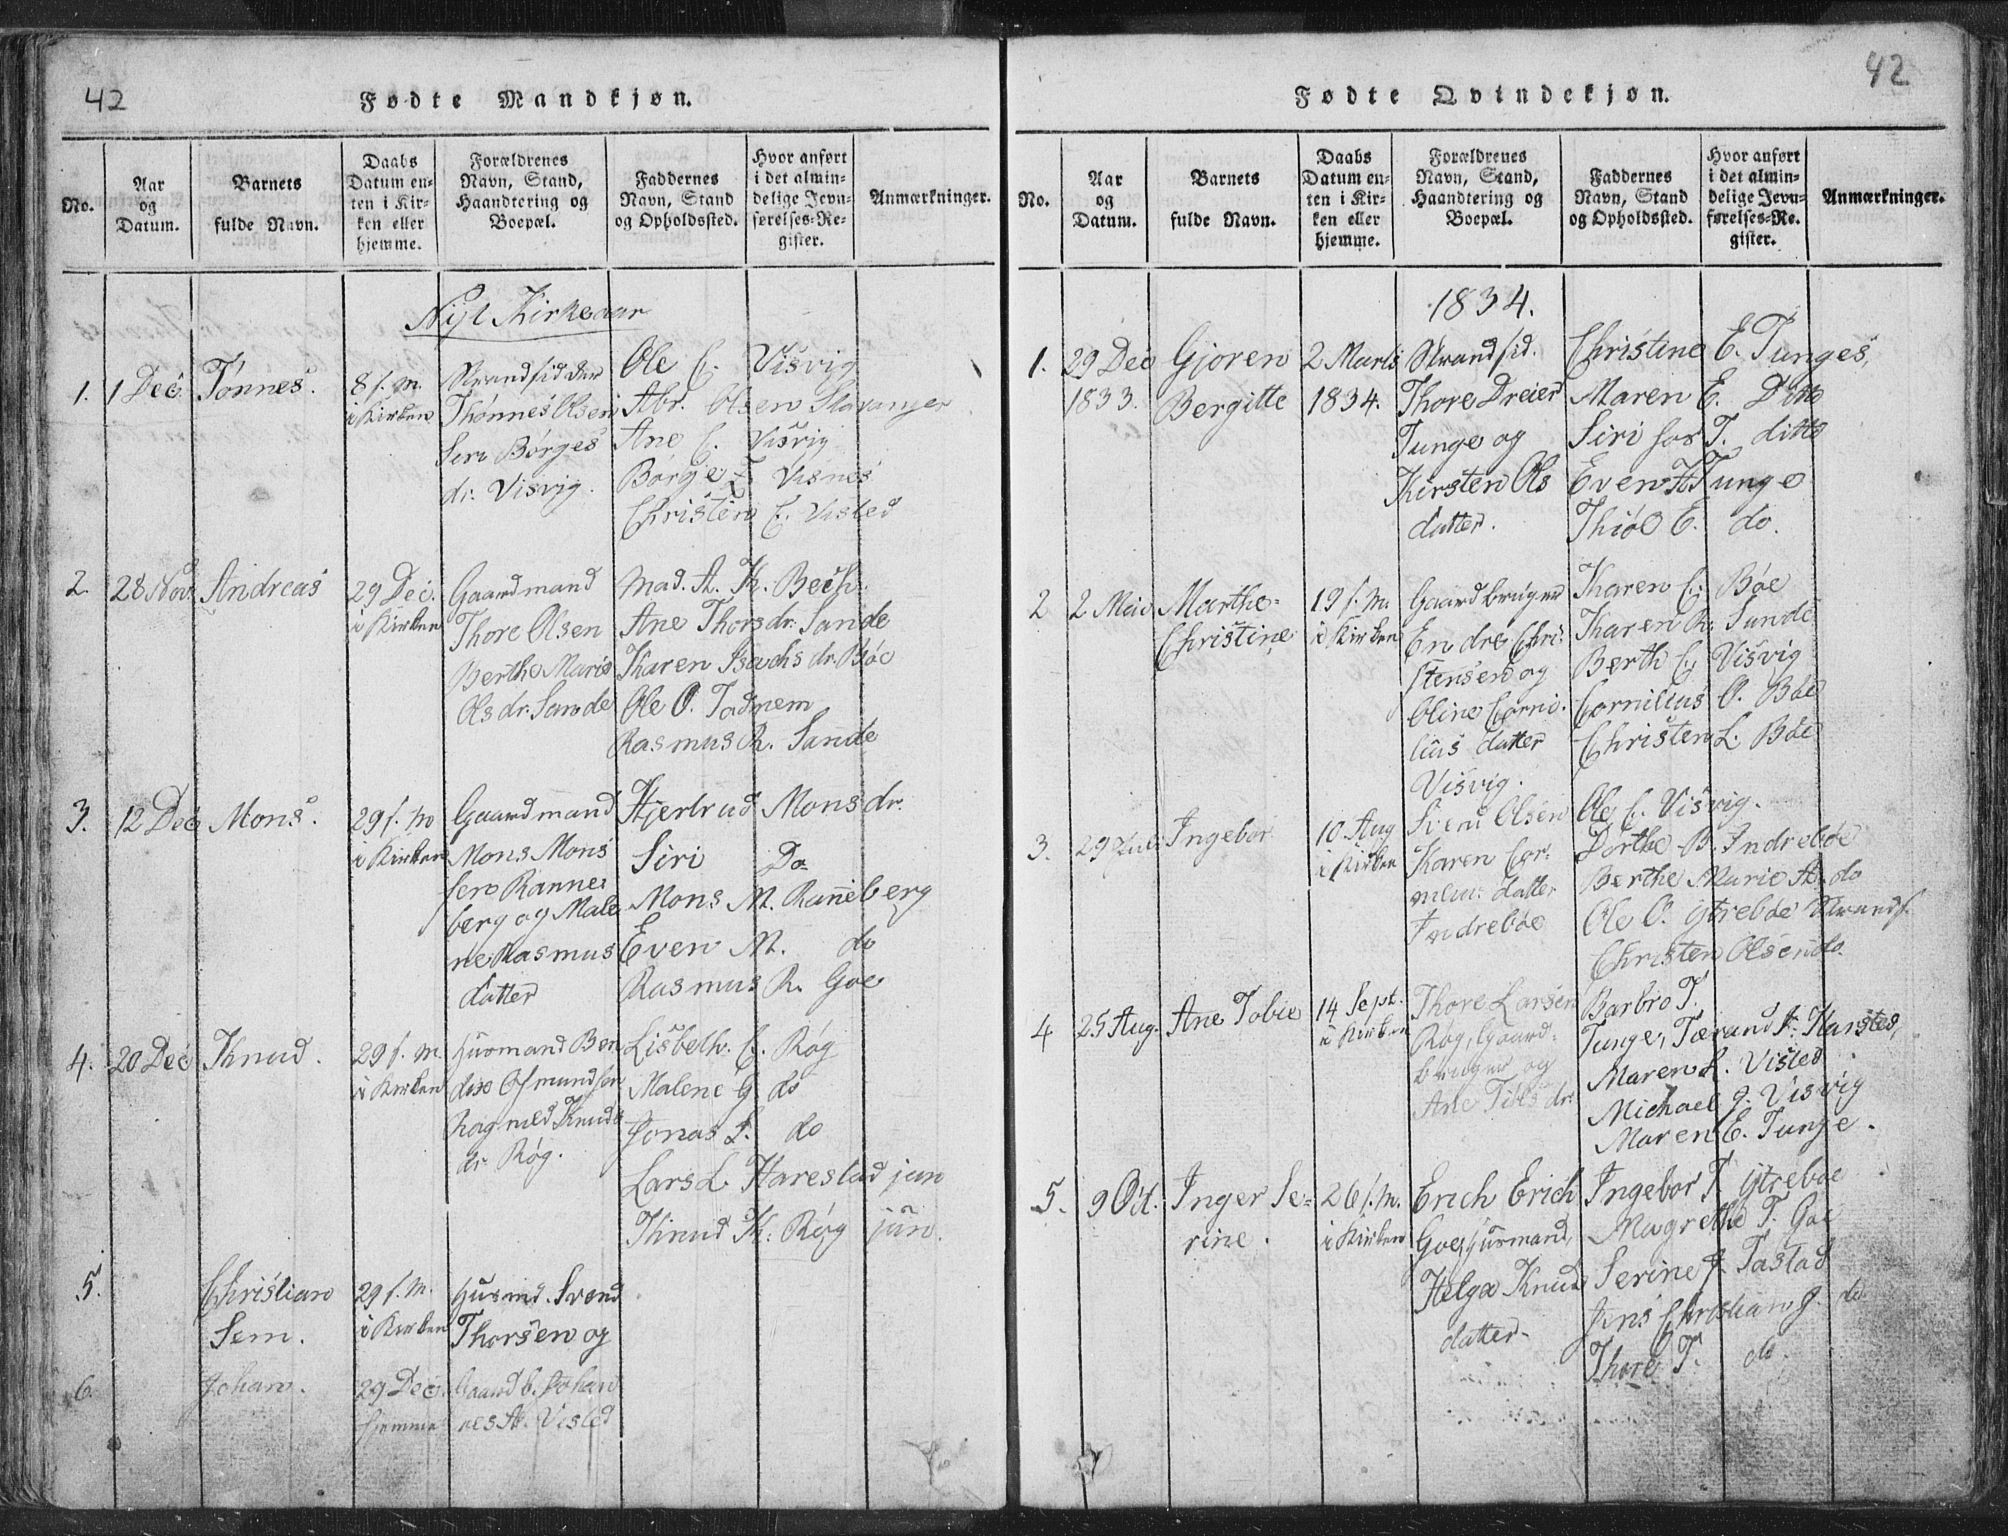 42
Fødte Mandkjøn.
No.
Aar og Datum.
Barnets fulde Navn.
Daabs Datum enten i Kirken eller hjemme.
Forældrenes Navn, Stand, Haandtering og Boepæl.
Faddernes Navn, Stand og Opholdssted.
Hvor anført i det almindelige Jevnførelses-Register.
Anmærkninger.
Nyt Kirkeaar
1. 1 Dec. Tønnes.
8 f. m.
i Kirken
Strandsidder
Thønnes Olsen
Siri Børges
dr. Visvig.
Ole C. Visvig
Abr. Olsen Stavanger
Ane C. Visvig
Børge T. Visnes
Christen C. Visted
2. 28 Nov. Andreas
29 Dec.
i Kirken
Gaardmand
Thore Olsen
Berthe Marie
Ols dr. Sande
Mad. A. K. Bech.
Ane Thors dr. Sande
Karen Isachs dr. Bøe
Ole O. Tadnem
Rasmus R. Sande
3. 12 Dec Mons.
29 f. m
i Kirken
Gaardmand
Mons Mons
sen Ranne
berg og Male
ne Rasmus
datter
Hjertrud Monsdr.
Siri Do
Mons M. Raneberg
Even M. do
Rasmus R. Goe
4. 20 Dec Knud.
29 f. m.
i Kirken
Huusmand Ben
dix Osmundsen
Ragnild Knuds
dr. Røg.
Lisbeth C. Røg
Malene G. do
Jonas L. do
Lars L. Harestad jun
Knud K. Røg jun.
5. Christian
Sem.
29 f. m.
i Kirken
Husmd. Svend
Thorsen og
6. Johan.
29 Dec.
hjemme
Gaardb. Johan
nes A. Visted
42
Fødte Qvindekjøn.
No.
Aar og Datum.
Barnets fulde Navn.
Daabs Datum enten i Kirken eller hjemme.
Forældrenes Navn, Stand, Haandtering og Boepæl.
Faddernes Navn, Stand og Opholdssted.
Hvor anført i det almindelige Jevnførelses-Register.
Anmærkninger.
1834.
1. 29 Dec
1833.
Gjoren
Bergitte
2 Marts
1834.
Strandsid.
Thore Dreier
Tunge og
Kirsten Ols
datter.
Christine E. Tunges
Maren E. Ditto
Siri T. ditto
Even H Tunge
Thiøl E. do.
2 2 Mai Marthe
Christine
19 f. m.
i Kirken
Gaardbruger
Endre Chri
stensen og
Oline Corni
lius datter
Visvig.
Karen C. Bøe
Karen R. Sunde
Berth C. Visvig
Cornilius O. Bøe
Christen L. Bøe
3. 29 Jul. Ingebor
10. Aug
i Kirken
Svend Olsen
Karen Cor
datter
Indrebøe
Ole C. Visvig.
Dorthe B. Indrebøe
Berthe Marie A. do
Ole O. Ytrebøe Strands.
Christen Olsen do.
4 25 Aug. Ane Tobie
14 Sept.
i Kirken
Thore Larsen
Røg, Gaard
bruger og
Ane dr.
Barbro T.
Tunge, Harestad,
Maren L. Visted
Michael J. Visvig
Maren E. Tunge.
5. 9 Oct. Inger Se
rine.
26 f. m.
i Kirken
Erich Erich
Goe, Husmand,
Helga Knuds
datter
Ingebor T Ytrebøe
Magrethe T. Goe
Serine J. Tastad
Jens Christian J. do
Thore T. do.